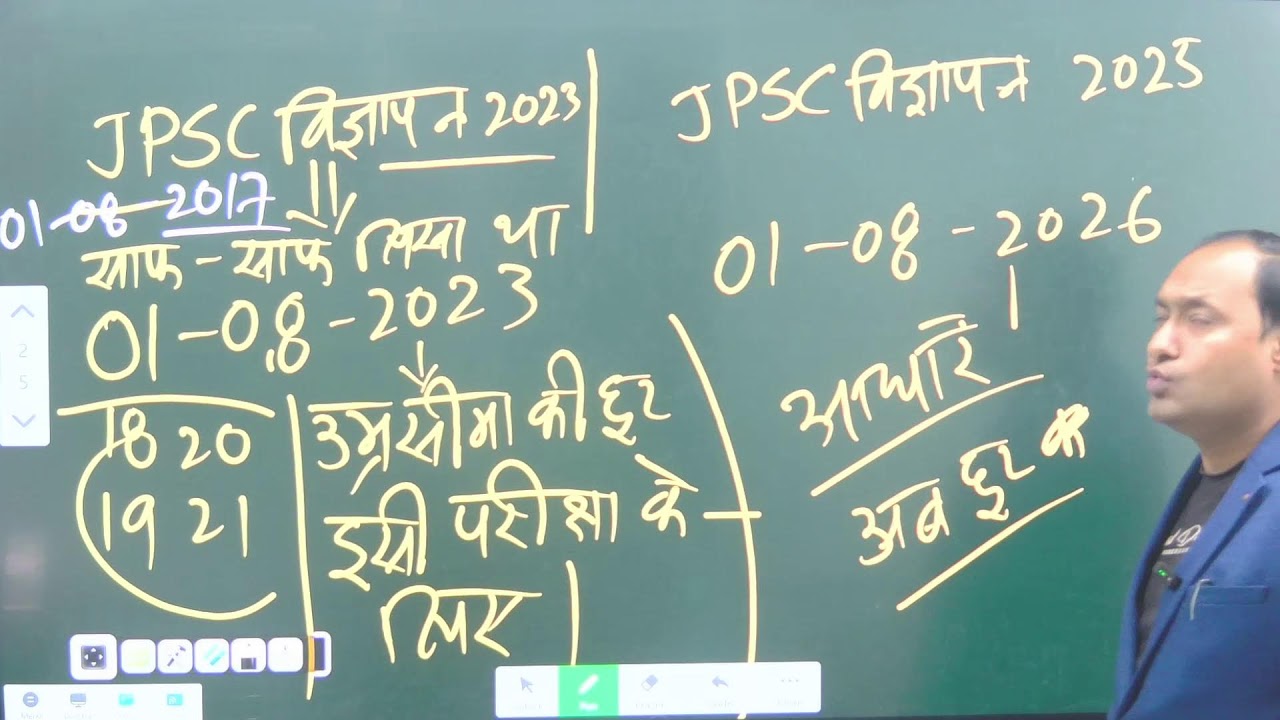 JPSC विज्ञापन 2023
01-08-2017
साफ - साफ लिखा था
01-08-2023
18 20
19 21
उम्रसीमा की छूट
इसी परीक्षा के
लिए
JPSC विज्ञापन 2025
01-08-2026
आधार
अब छूट क
2
5